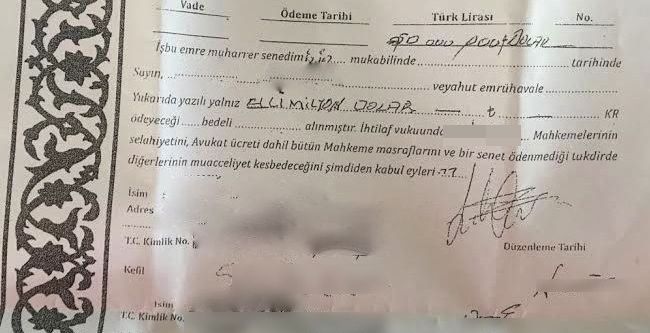 Vade Ödeme Tarihi Türk Lirası No.
50 000 000 DOLAR
İşbu emre muharrer senedim ..... mukabilinde ..... tarihinde
Sayın, ..... veyahut emrühavale .....
Yukarıda yazılı yalnız ELLİ MİLYON DOLAR — ₺ — KR
ödeyeceği ..... bedeli ..... alınmıştır. İhtilaf vukuunda Mahkemelerinin
selahiyetini, Avukat ücreti dahil bütün Mahkeme masraflarını ve bir senet ödenmediği takdirde
diğerlerinin muacceliyet kesbedeceğini şimdiden kabul eyleri
İsim
Adres
T.C. Kimlik No. Düzenleme Tarihi
Kefil
İsim
T.C. Kimlik No.